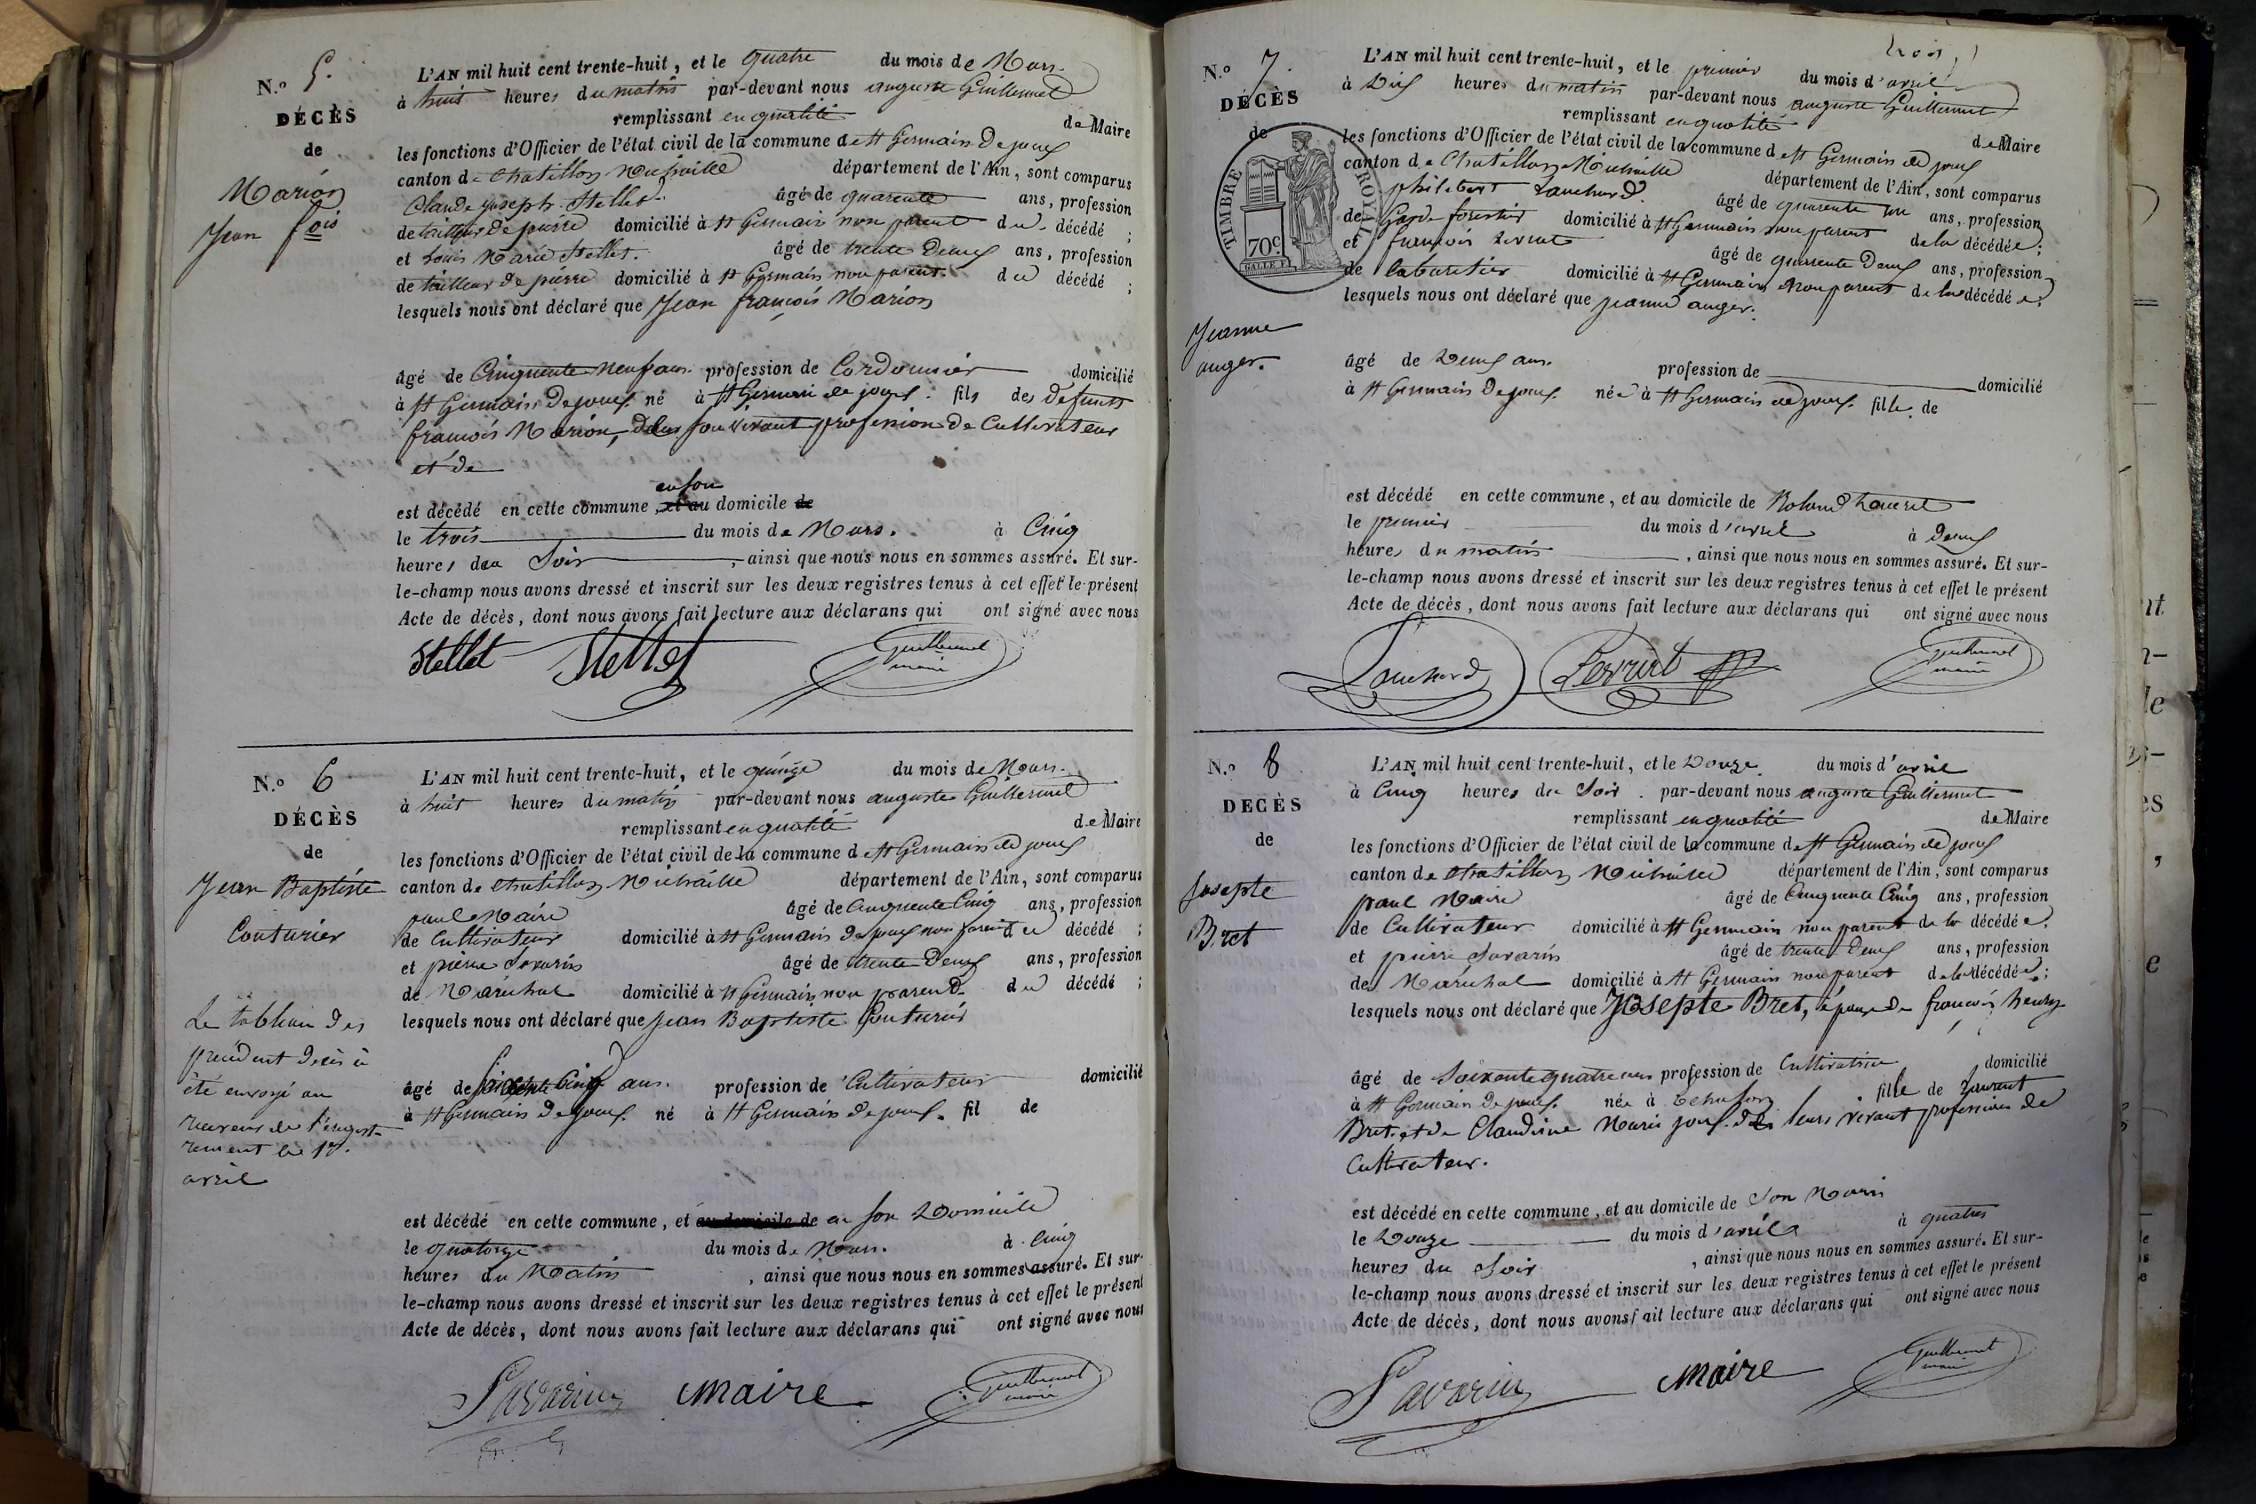 N.º 5.
DÉCÈS
de
Marion
Jean fois
L'AN mil huit cent trente-huit, et le quatre du mois de Mars.
à huit heures du matin par-devant nous auguste Guillermet
remplissant en qualité de Maire
les fonctions d'Officier de l'état civil de la commune de St Germain de joux
canton de Chatillon Michaille département de l'Ain, sont comparus
Claude joseph Stellet âgé de quarente ans, profession
de tailleur de pierre domicilié à St Germain non parent du décédé ;
et Louis Marie Stellet. âgé de trente Deux ans, profession
de tailleur de pierre domicilié à St Germain non parent. du décédé ;
lesquels nous ont déclaré que Jean françois Marion
âgé de Cinquente Neuf ans. profession de Cordonnier domicilié
à St Germain De joux. né à St Germain de joux. fils des défunts
françois Marion, de son vivant profession de Cultivateur
et de
en son
est décédé en cette commune, et au domicile de
le trois du mois de Mars. à Cinq
heures du Soir, ainsi que nous nous en sommes assuré. Et sur-
le-champ nous avons dressé et inscrit sur les deux registres tenus à cet effet le présent
Acte de décès, dont nous avons fait lecture aux déclarans qui ont signé avec nous
Stellet Stellet Guillermet
maire
N.º 6
DÉCÈS
de
Jean Baptiste
Couturier
Le tableau des
précédent décès à
été envoyé au
receveur de l'enregist-
rement le 1er.
avril
L'AN mil huit cent trente-huit, et le quinze du mois de Mars.
à huit heures du matin par-devant nous auguste Guillermet
remplissant en qualité de Maire
les fonctions d'Officier de l'état civil de la commune de St Germain de joux
canton de Chatillon Michaille département de l'Ain, sont comparus
paul Maire âgé de Cinquente Cinq ans, profession
de Cultivateur domicilié à St Germain de joux non parent du décédé ;
et pierre Savarin âgé de trente Deux ans, profession
de Maréchal domicilié à St Germain non parend. du décédé ;
lesquels nous ont déclaré que jean Baptiste Couturier
âgé de Cinq ans. profession de Cultivateur domicilié
à St Germain De joux. né à St Germain de joux. fil de
est décédé en cette commune, et au domicile de en son Domicile
le quatorze du mois de Mars. à Cinq
heures du Matin, ainsi que nous nous en sommes assuré. Et sur-
le-champ nous avons dressé et inscrit sur les deux registres tenus à cet effet le présent
Acte de décès, dont nous avons fait lecture aux déclarans qui ont signé avec nous
Savarin maire Guillermet
maire
trois
N.º 7.
DÉCÈS
de
TIMBRE ROYAL
70c.
Jeanne
auger.
L'AN mil huit cent trente-huit, et le premier du mois d'avril
à Dix heures du matin par-devant nous auguste Guillermet
remplissant en qualité de Maire
les fonctions d'Officier de l'état civil de la commune de St Germain de joux
canton de Chatillon Michaille département de l'Ain, sont comparus
philibert Louchard. âgé de quarente un ans, profession
de Garde forestier domicilié à St Germain non parent de la décédée ;
et françois Levrat âgé de quarente Deux ans, profession
de Cabaretier domicilié à St Germain non parent de la décédée ;
lesquels nous ont déclaré que jeanne auger.
âgé de Deux ans. profession de domicilié
à St Germain De joux. née à St Germain de joux. fille. de
est décédé en cette commune, et au domicile de Roland
le premier du mois d'avril à deux
heures du matin, ainsi que nous nous en sommes assuré. Et sur-
le-champ nous avons dressé et inscrit sur les deux registres tenus à cet effet le présent
Acte de décès, dont nous avons fait lecture aux déclarans qui ont signé avec nous
Louchard Levrat Guillermet
maire
N.º 8
DECÈS
de
Josepte
Bret
L'AN mil huit cent trente-huit, et le Douze. du mois d'avril
à Cinq heures du Soir. par-devant nous auguste Guillermet
remplissant en qualité de Maire
les fonctions d'Officier de l'état civil de la commune de St Germain de joux
canton de Chatillon Michaille département de l'Ain, sont comparus
paul Maire âgé de Cinquente Cinq ans, profession
de Cultivateur domicilié à St Germain non parent de la décédée ;
et pierre Savarin âgé de trente Deux ans, profession
de Maréchal domicilié à St Germain non parent de la décédée ;
lesquels nous ont déclaré que Josepte Bret, épouse de françois henry
âgé de Soixante quatre ans profession de Cultivatrice domicilié
à St Germain De joux. née à Echallon fille de Laurent
Bret. et de Claudine Marie joux. de leurs vivant profession de
Cultivateur.
est décédé en cette commune, et au domicile de Son Mari
le Douze du mois d'avril à quatres
heures du Soir, ainsi que nous nous en sommes assuré. Et sur-
le-champ nous avons dressé et inscrit sur les deux registres tenus à cet effet le présent
Acte de décès, dont nous avons fait lecture aux déclarans qui ont signé avec nous
Savarin maire Guillermet
maire